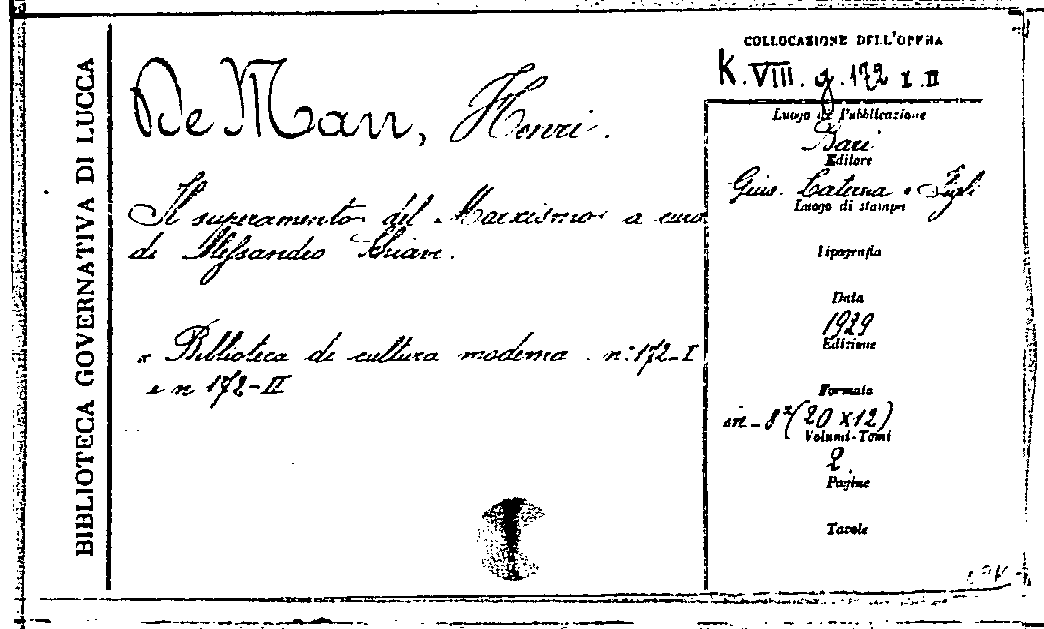 BIBLIOTECA GOVERNATIVA DI LUCCA
De Man, Henri.
Il superamento del Marxismo a cura
di Alessandro Schiavi.
« Biblioteca di cultura moderna n. 172-I
e n 172-II
COLLOCAZIONE DELL'OPERA
K. VIII. g. 172 I. II
Luogo di Pubblicazione
Bari
Editore
Gius. Laterza e Figli
Luogo di stampa
Tipografia
Data
1929
Edizione
Formato
in-8° (20 x 12)
Volumi-Tomi
2
Pagine
Tavole